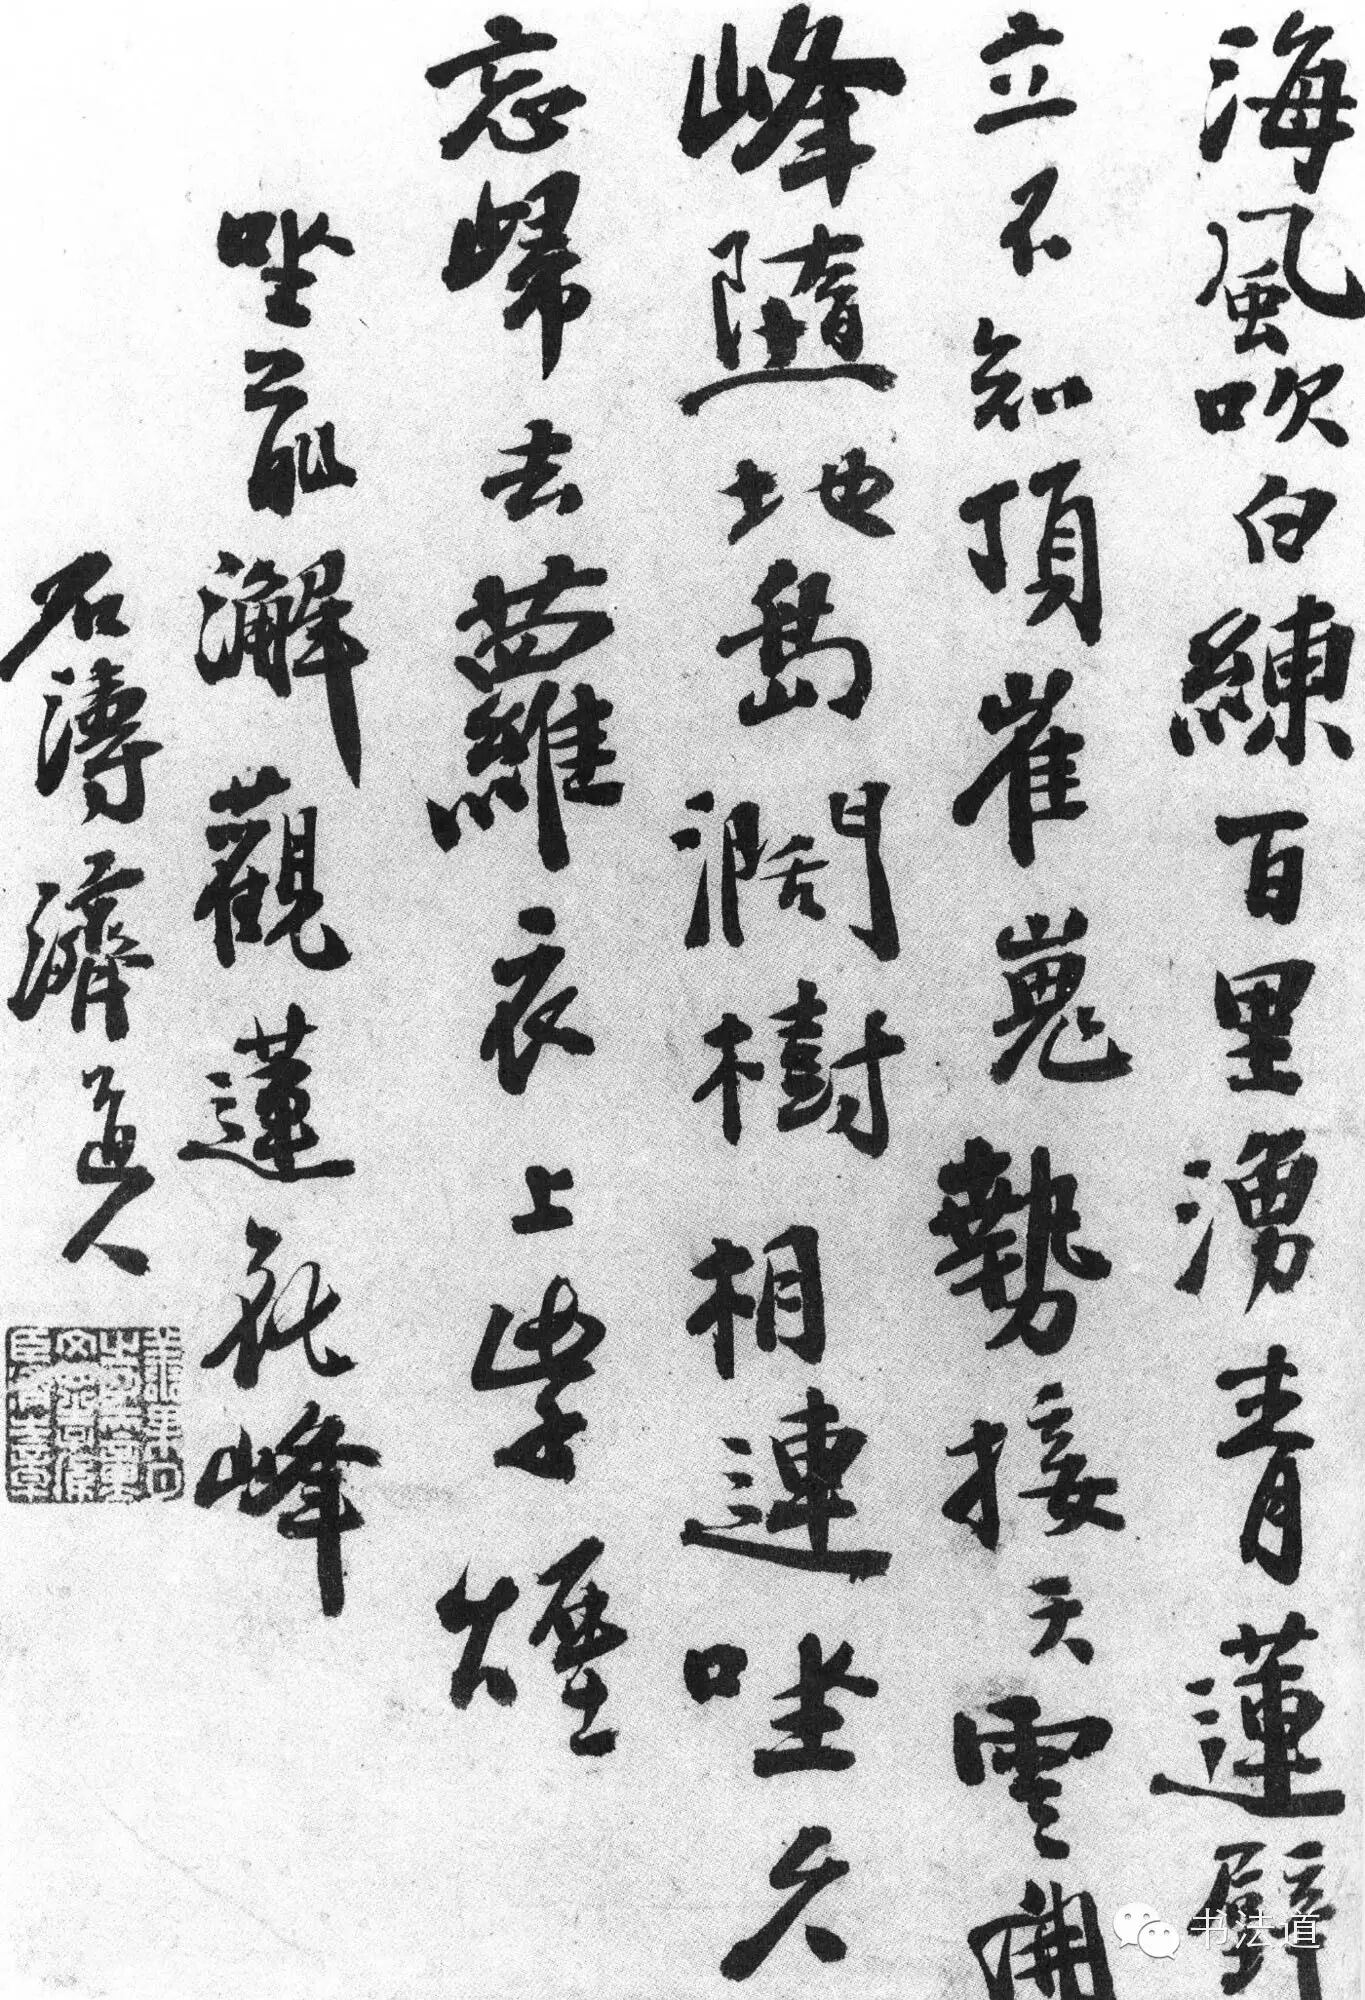 海風吹白練百里湧青蓮壁
立不知頂崔嵬勢接天雲開
峰隨地島濶樹相連坐久
忘歸去蘿衣上紫煙
坐前澥觀蓮花峰
石濤濟道人
书法道